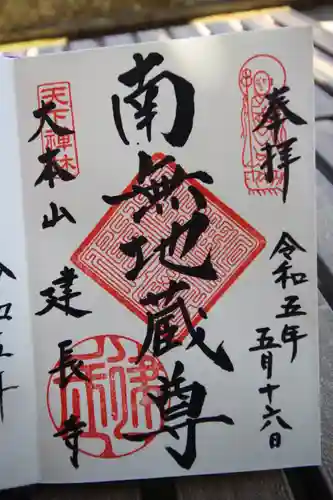 奉拝
令和五年
五月十六日
南無地蔵尊
天下禅林
大本山
建長寺
令和五年